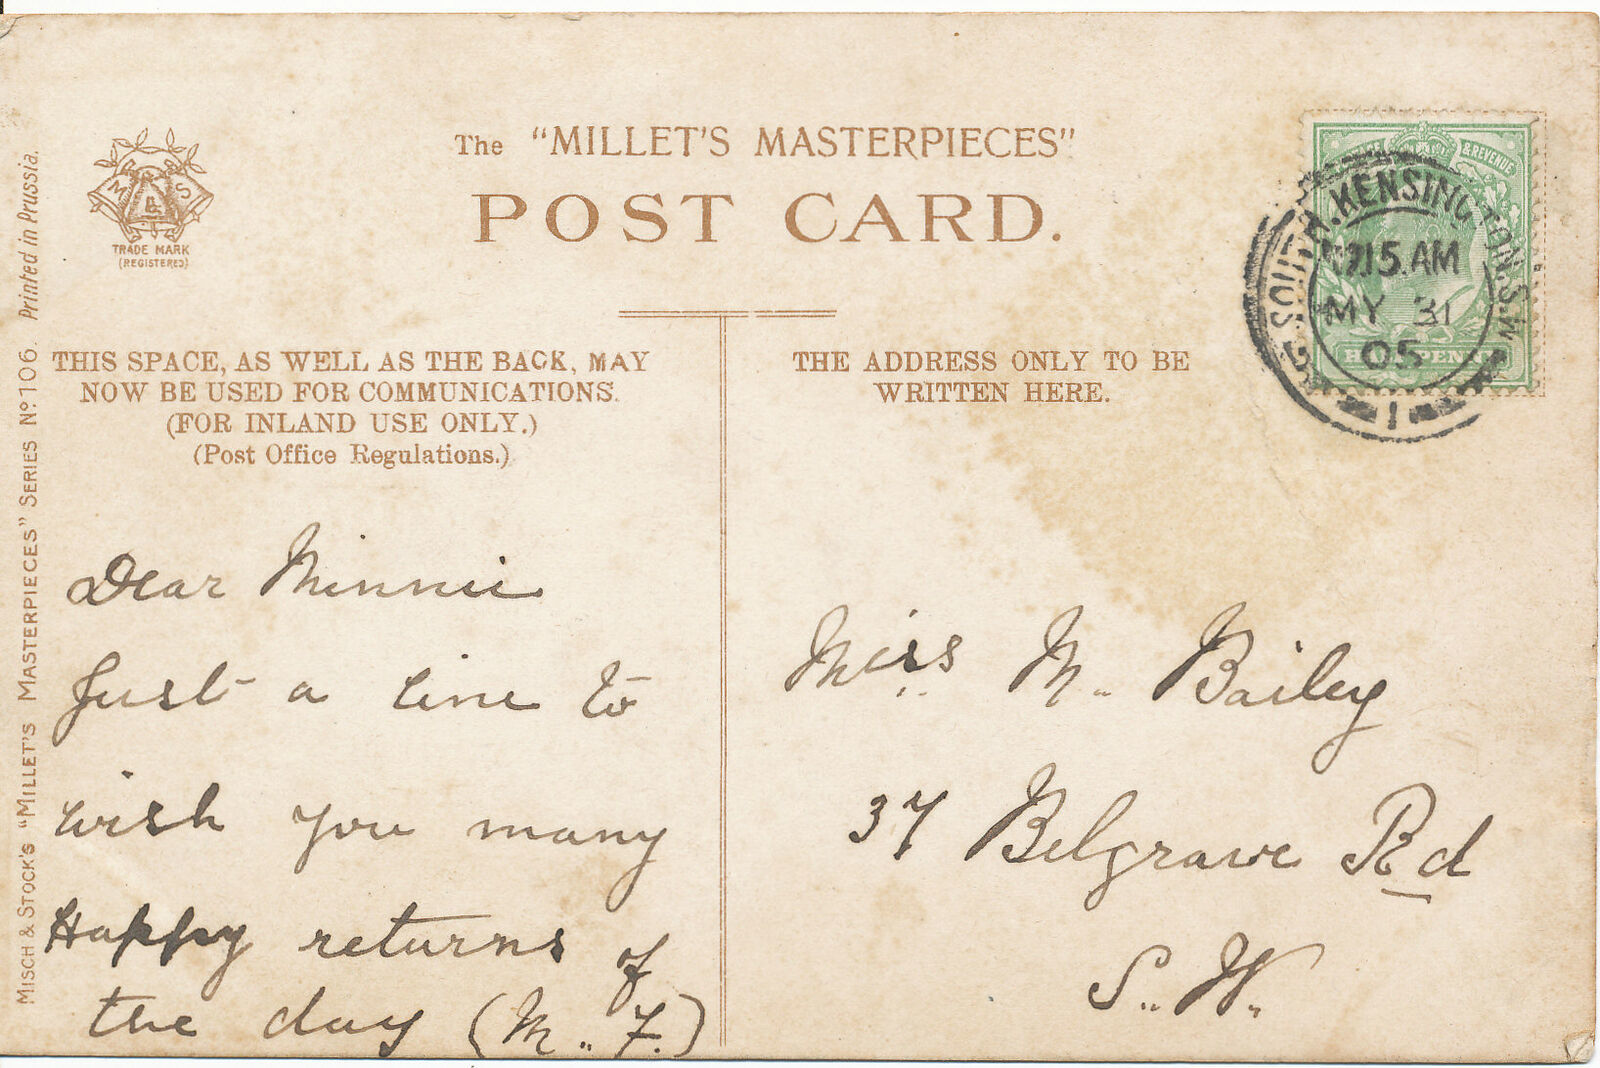 The "MILLET'S MASTERPIECES"
POST CARD.
M & S
TRADE MARK
(REGISTERED)
MISCH & STOCK'S "MILLET'S MASTERPIECES" SERIES Nº. 106. Printed in Prussia.
THIS SPACE, AS WELL AS THE BACK, MAY
NOW BE USED FOR COMMUNICATIONS.
(FOR INLAND USE ONLY.)
(Post Office Regulations.)
THE ADDRESS ONLY TO BE
WRITTEN HERE.
& REVENUE
SOUTH. KENSINGTON. S.W.
MY 31
05
1
Dear Minnie
Just a line to
wish you many
Happy returns of
the day (M. F.)
Miss M. Bailey
37 Belgrave Rd
S. W.